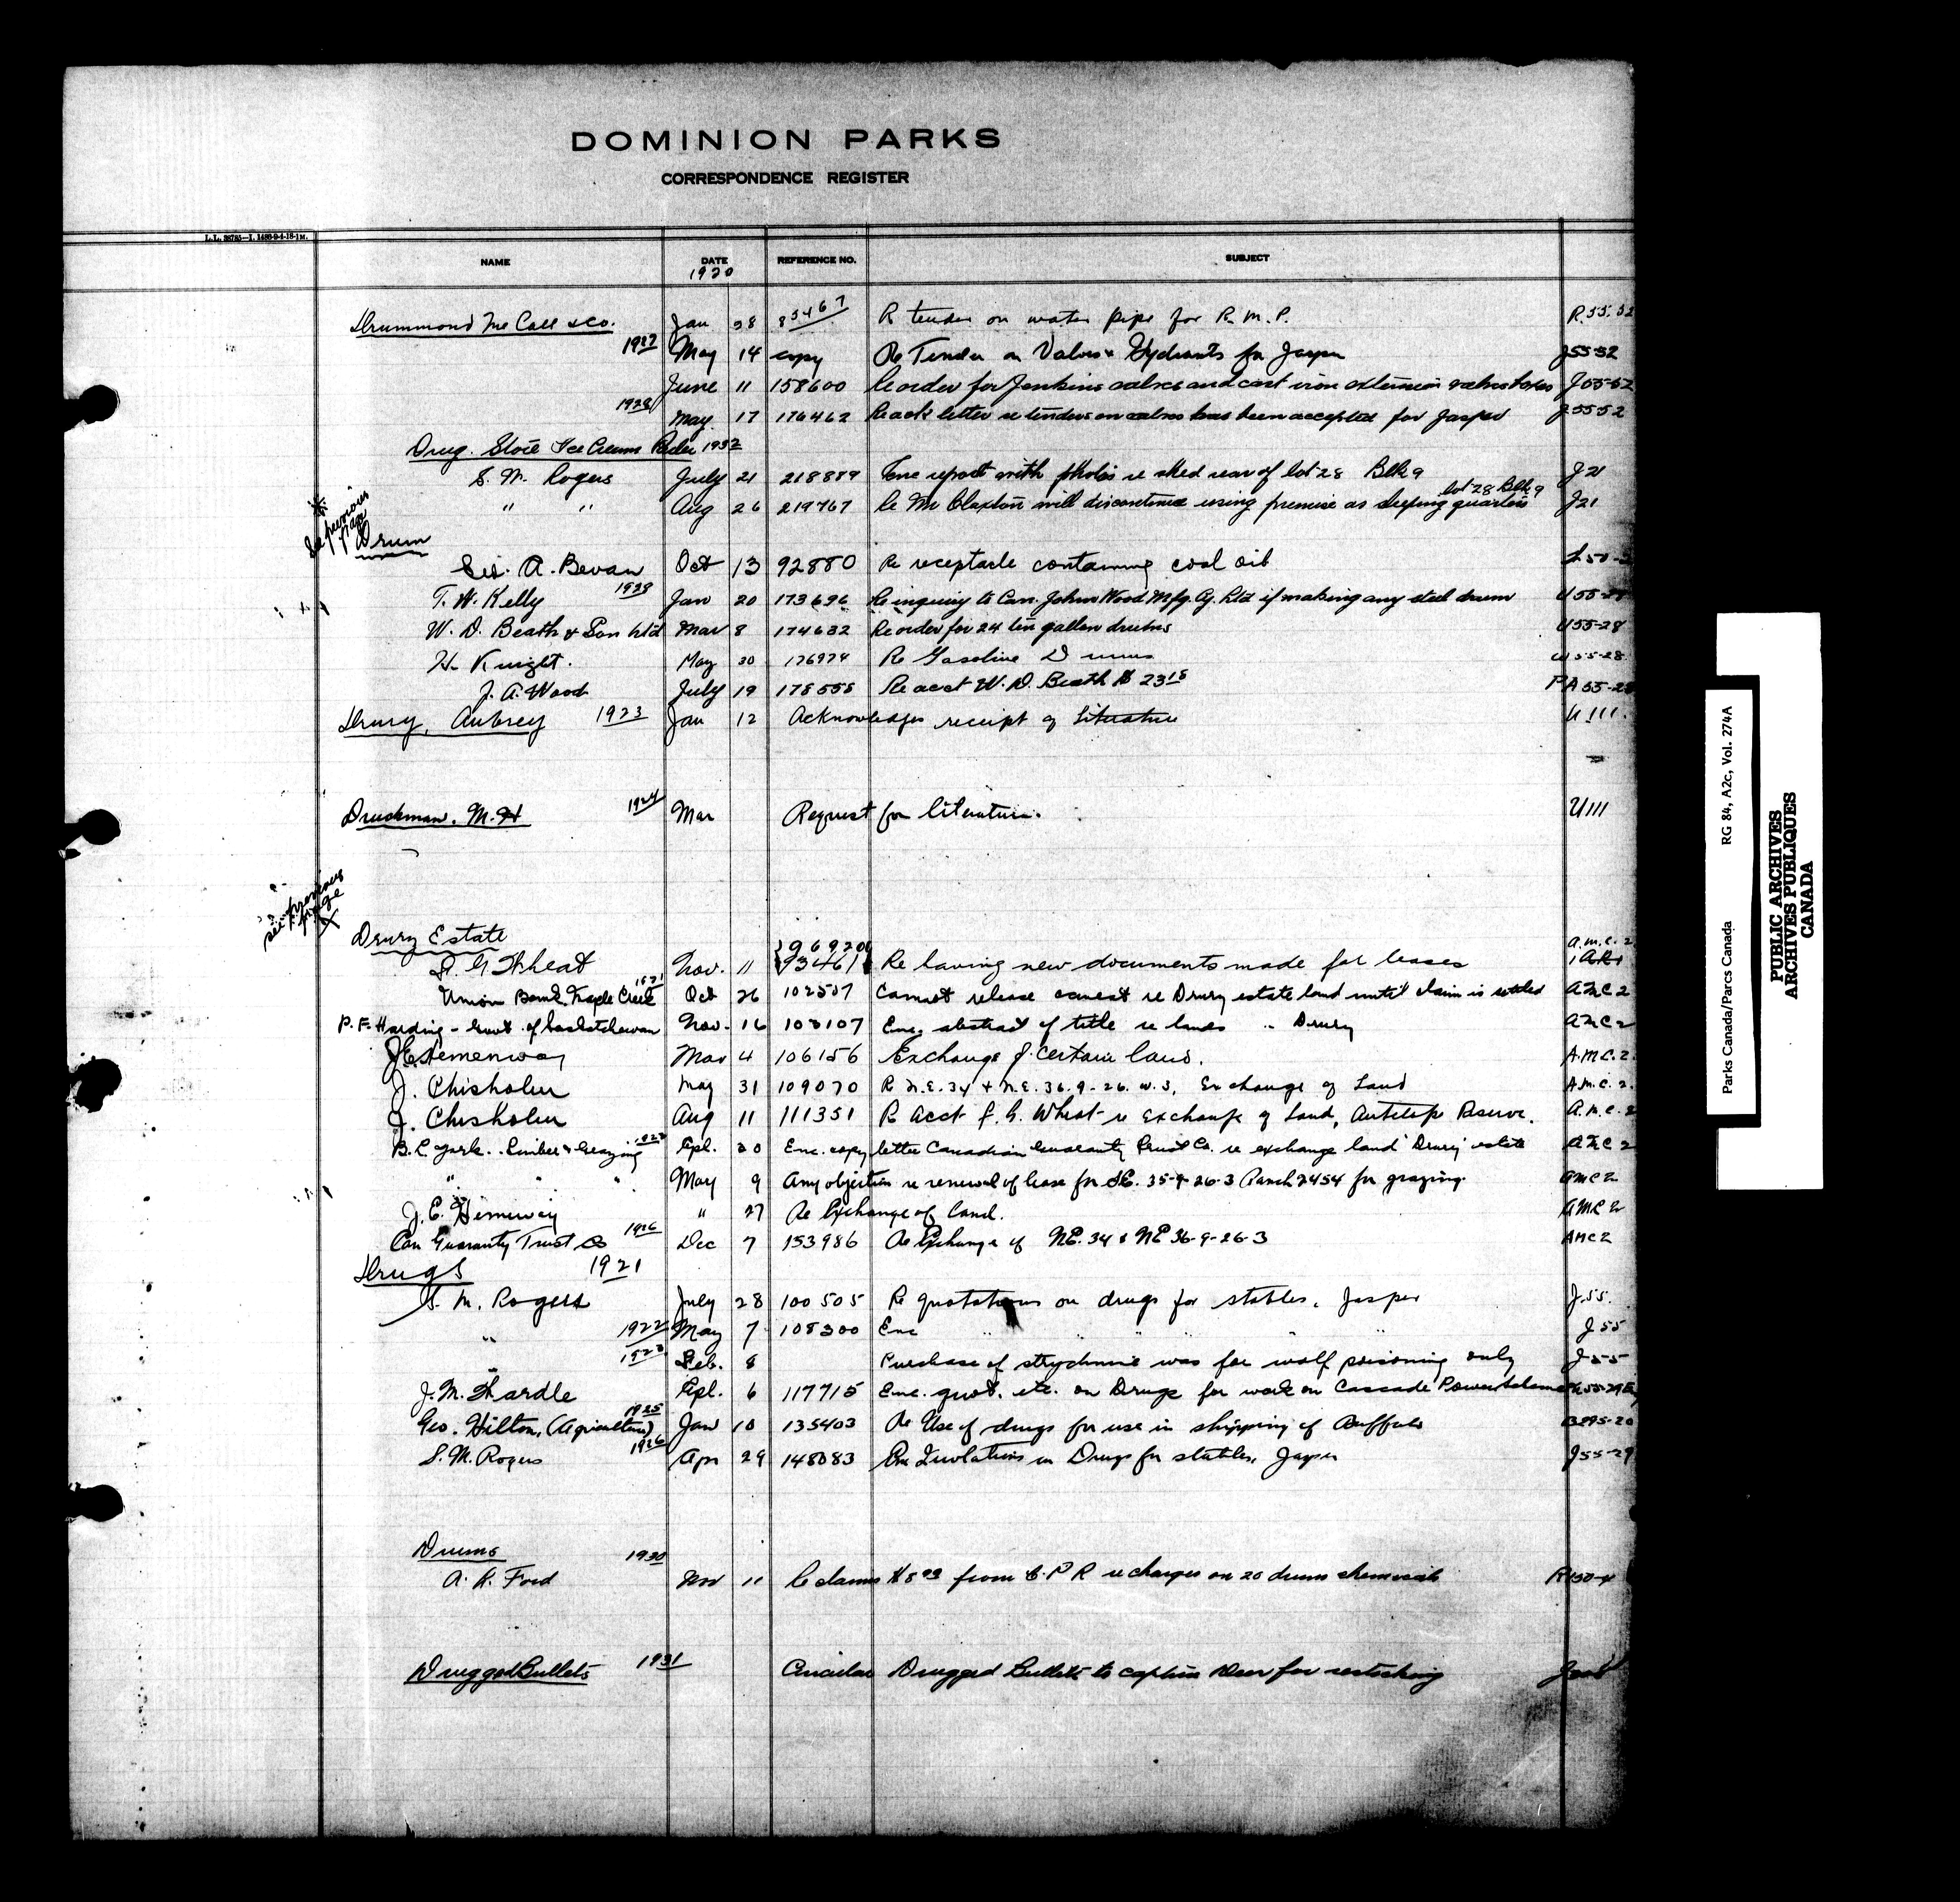 DOMINION PARKS
CORRESPONDENCE REGISTER
NAME DATE REFERENCE NO. SUBJECT
1920
Drummond McCall & Co. Jan 28 83467 Re tender on water pipe for R.M.P. R.55.52
1927 May 14 copy Re Tender on Valves & Hydrants for Jasper J55-52
June 11 158600 Re order for Jenkins valves and cast iron extension valve boxes J55-52
1928 May 17 176462 Re ack letter re tenders on valves has been accepted for Jasper J5552
Drug. Store Ice Cream Parlor 1932
S. M. Rogers July 21 218889 Enc report with photos re shed rear of lot 28 Blk 9 J21
" " Aug 26 219767 Re Mr Claxton will discontinue using premise as sleeping quarters lot 28 Blk 9 J21
See previous page
Drum
Geo. A. Bevan Oct 13 92880 Re receptacle containing coal oil
T. W. Kelly 1928 Jan 20 173696 Re inquiry to Can. John Wood Mfg. Co. Ltd if making any steel drum U55-28
W. D. Beath & Son Ltd Mar 8 174632 Re order for 24 ten gallon drums U55-28
H. Knight. May 30 176974 Re Gasoline Drums W55-28
J. A. Wood July 19 178558 Re acct W. D. Beath $23 15 PA55-28
Drury, Aubrey 1923 Jan 12 Acknowledges receipt of Literature U111.
Druckman. M. H 1924 Mar Request for literature. U111
see previous page
Drury Estate 96920 A.M.C.2
Nov. 11 93461 Re having new documents made for leases
Union Bank Maple Creek 1921 Oct 26 102507 Cannot release caveat re Drury estate land until claim is settled AMC2
P. F. Harding - Govt of Saskatchewan Nov. 16 103107 Enc. abstract of title re lands .. Drury AMC2
J.E. Hemenway Mar 4 106156 Exchange of certain land. A.M.C.2.
J. Chisholm May 31 109070 R N.E. 34 & N.E. 36.9-26. w.3. Exchange of Land A.M.C.2.
J. Chisholm Aug 11 111351 R Acct f. G. Wheat re Exchange of Land, Antelope Reserve. A.M.C.2
B. C York. Timber & Grazing 1922 Apl. 20 Enc. copy letter Canadian Guaranty Trust Co. re exchange land Drury estate AMC2
" " " May 9 Any objection re renewal of lease for SE. 35-9-26-3 Ranch 2454 for grazing. AMC2
J. E. Hemeway " 27 Re Exchange of land. AMC2
Can Guaranty Trust Co 1926 Dec 7 153986 Re Exchange of NE. 34 & NE 36-9-26-3 AMC2
Drugs 1921
S. M. Rogers July 28 100505 Re quotations on drugs for stables, Jasper J.55.
" 1922 May 7 108300 Enc " " " " " J55
" 1923 Feb. 8 Purchase of strychnine was for wolf poisoning only J-55
J. M. Wardle Apl. 6 117715 Enc. quot. etc. on Drugs for work on Cascade Power Scheme
Geo. Hilton, (Agriculture) 1925 Jan 10 135403 Re Use of drugs for use in shipping of Buffalo B295-20
S. M. Rogers 1926 Apr 29 148083 Enc Quotations on Drugs for stables, Jasper J55-29
Drums
A. K. Ford 1930 Nov 11 Re claims from C.P.R re charges on 20 drums chemicals
Drugged Bullets 1931 Circular Drugged Bullets to capture Deer for restocking
Parks Canada/Parcs Canada RG 84, A2c, Vol. 274A
PUBLIC ARCHIVES
ARCHIVES PUBLIQUES
CANADA